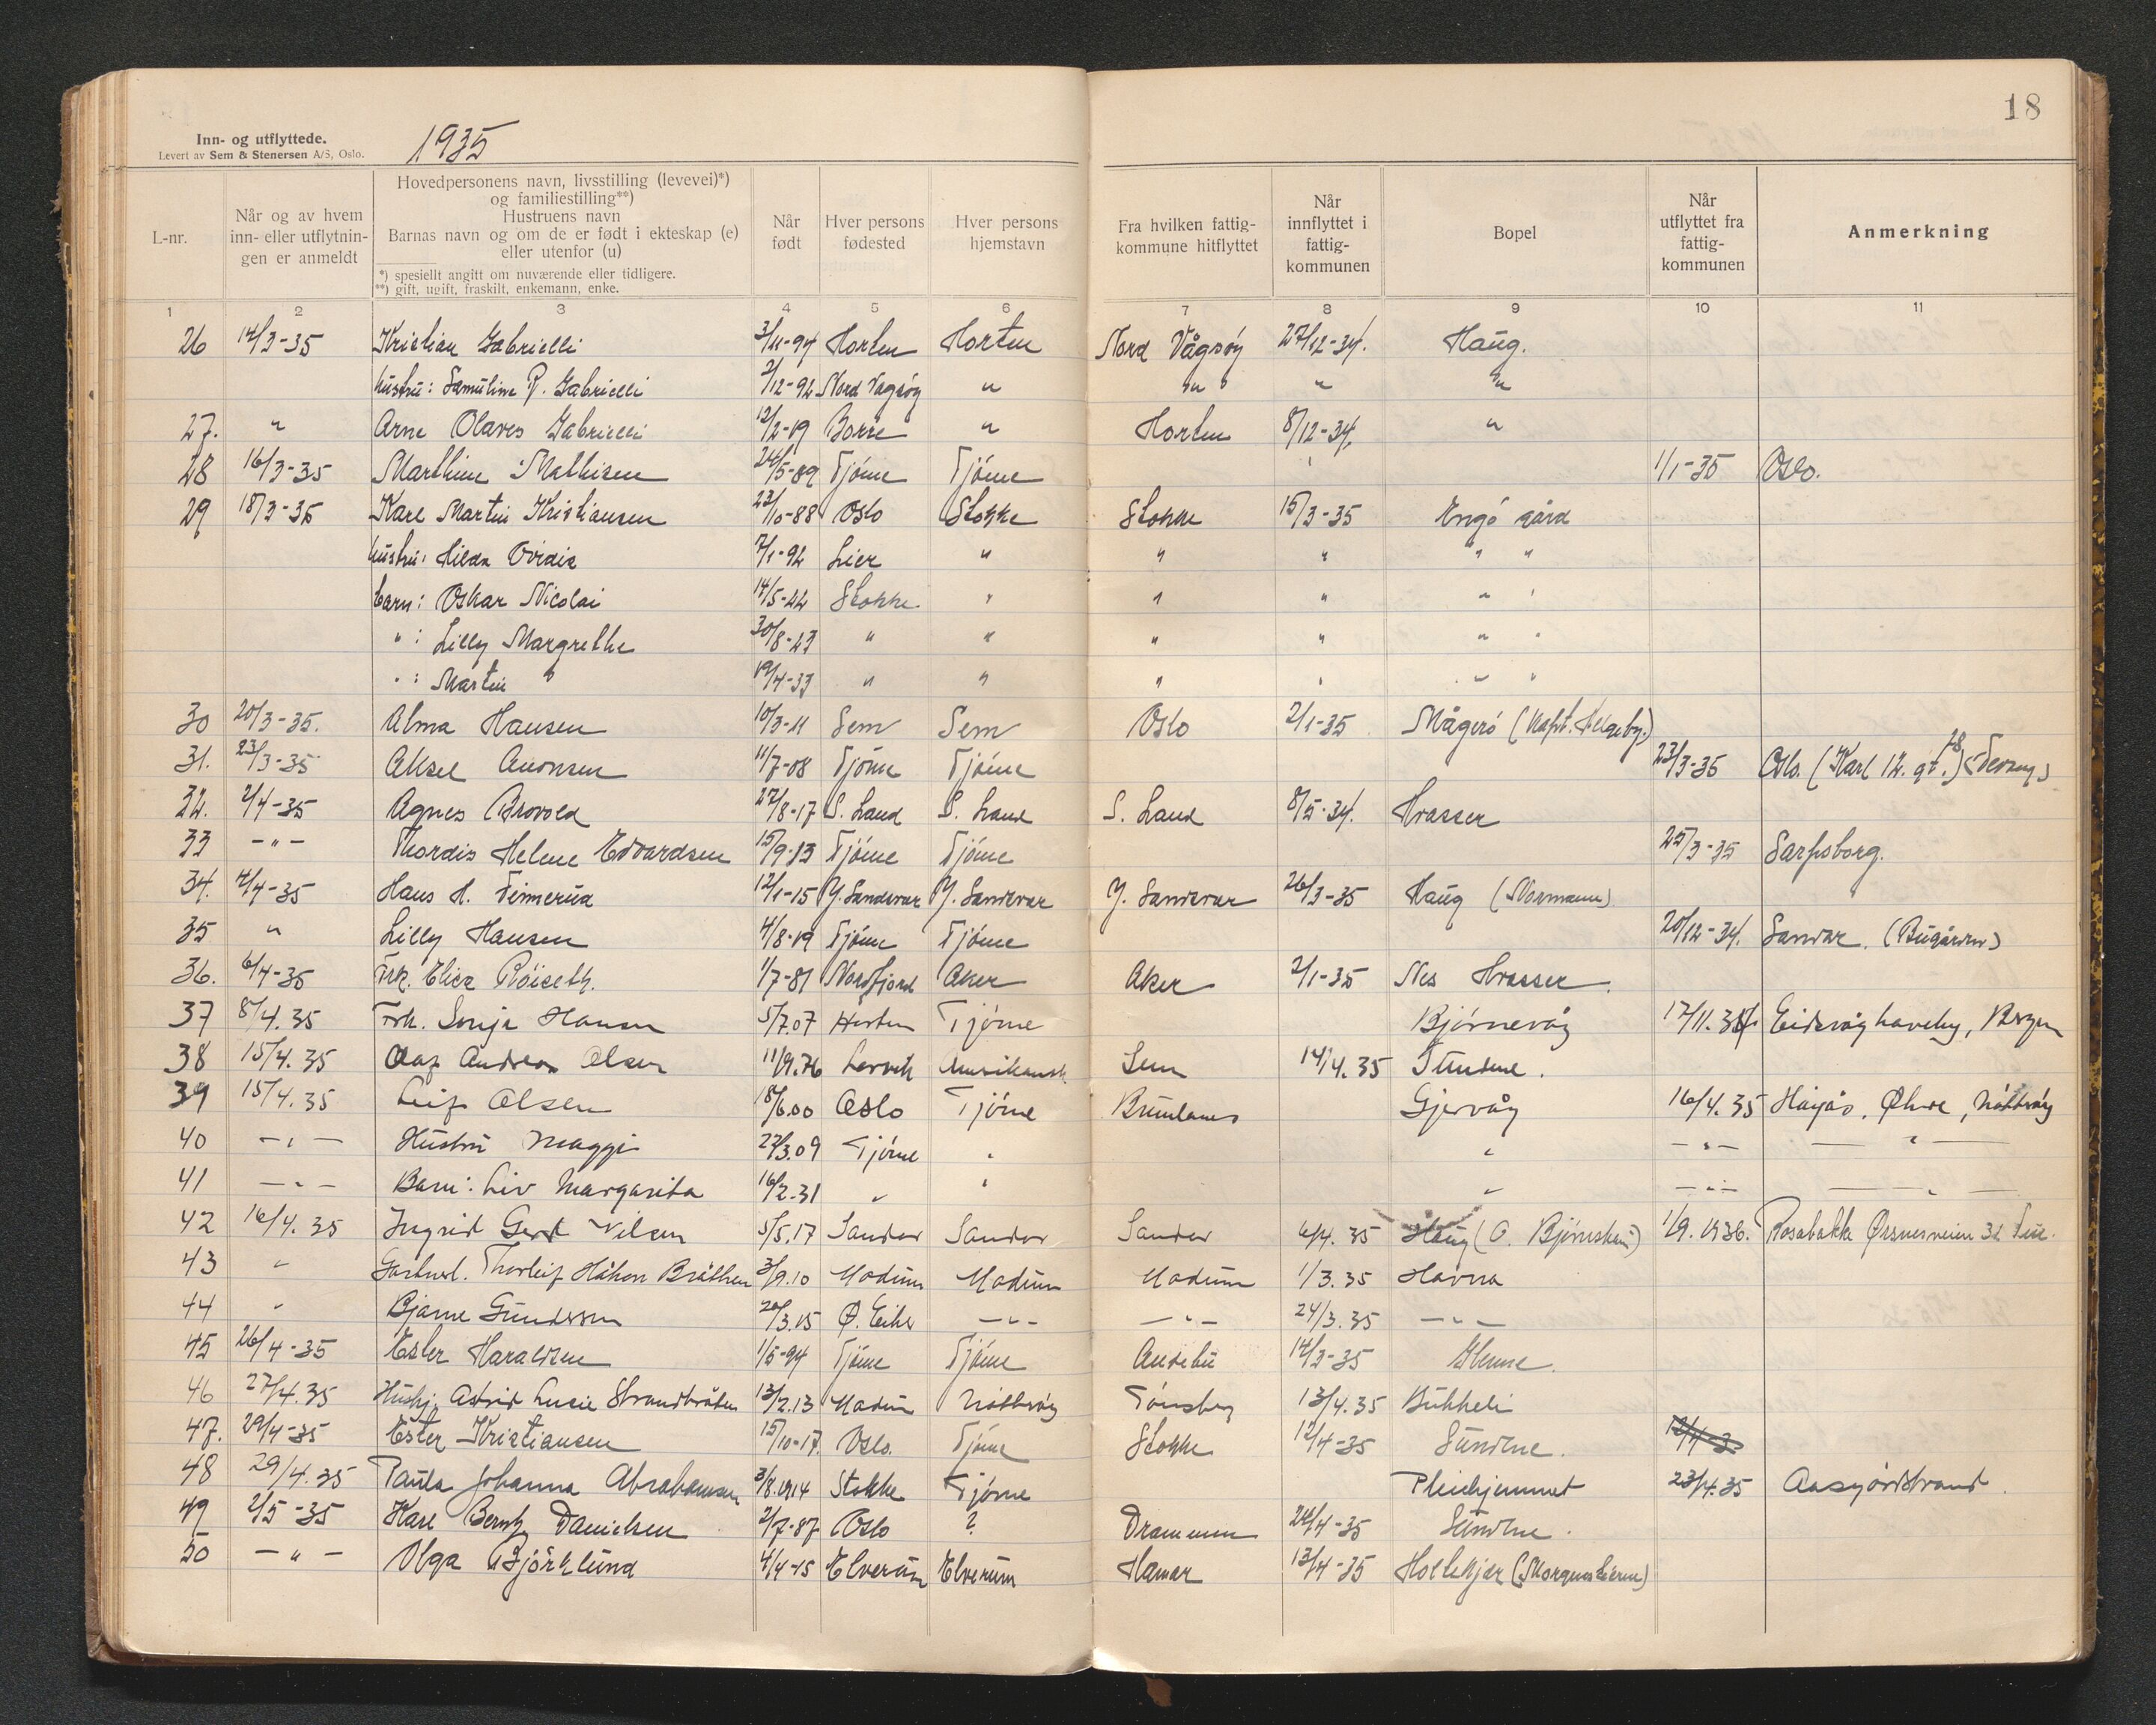 18
Inn- og utflyttede.
Levert av Sem & Stenersen A/S, Oslo.
1935
L-nr.
Når og av hvem inn- eller utflytnin-gen er anmeldt
Hovedpersonens navn, livsstilling (levevei)*)
og familiestilling**)
Hustruens navn
Barnas navn og om de er født i ekteskap (e)
eller utenfor (u)
*) spesiellt angitt om nuværende eller tidligere.
**) gift, ugift, fraskilt, enkemann, enke.
Når født
Hver persons fødested
Hver persons hjemstavn
Fra hvilken fattig-kommune hitflyttet
Når innflyttet i fattig-kommunen
Bopel
Når utflyttet fra fattig-kommunen
Anmerkning
1 2 3 4 5 6 7 8 9 10 11
26 14/3-35 Kristian Gabrielli 3/11-94 Horten Horten Nord Vågsöy 27/12-34. Haug.
hustru: Samuline P. Gabrielli 2/12-92 Nord Vagsöy " " " " "
27. " Arne Olaves Gabrielli 12/2-19 Borre " Horten 8/12-34. "
28 16/3-35 Marthine Mathisen 24/5-89 Tjöme Tjöme 1/1-35 Oslo.
29 18/3-35 Karl Martin Kristiansen 23/10-88 Oslo Stokke Stokke 15/3-35 Engö gård
hustru: Hilda Ovidia 7/1-92 Lier " " " " "
barn: Oskar Nicolai 14/5-22 Stokke " " " " "
" : Lilly Margrethe 30/8-23 " " " " " "
" : Martin 19/4-33 " " " " " "
30 20/3-35. Alma Hansen 10/3-11 Sem Sem Oslo 2/1-35 Mågerö (Kapt. Helgeby.)
31. 23/3-35 Aksel Aronsen 11/7-08 Tjöme Tjöme 23/3-35 Oslo. (Karl 12. gt. 18)
32. 2/4-35 Agnes Brovold 27/8-17 S. Land S. Land S. Land 8/5-34. Hvasser
33 -"- Thordis Helene Edvardsen 15/9-13 Tjöme Tjöme 25/3-35 Sarpsborg.
34. 4/4-35 Hans H. Teimerud 12/1-15 Y. Sandsvær Y. Sandsvær Y. Sandsvær 26/3-35 Haug (Normann)
35 " Lilly Hansen 4/8-19 Tjöme Tjöme 20/12-34. Sandar. (Bugården)
36. 6/4-35 Frk. Elisa Röiseth. 1/7-81 Nordfjord Aker Aker 2/1-35 Nes Hvasser.
37 8/4.35 Frk. Sonja Hansen 5/7.07 Horten Tjöme Bjørnevåg 17/11.34 Eidsvåg haveby, Bergen
38 15/4.35 Olaf Andreas Olsen 11/9.76 Larvik Amerikansk. Sem 14/4.35 Sundene.
39 15/4.35 Leif Olsen 18/6.00 Oslo Tjöme Brunlanes Gjervåg 16/4.35 Nötterøy
40 -"- Hustru Maggi 22/3.09 Tjöme " " -"- -"-
41 -"- Barn: Liv Margarita 16/2.31 " " " -"- -"-
42 16/4.35 Ingrid Gerd Nilsen 5/5.17 Sandar Sandar Sandar 6/4.35 Haug (O. Bjørnskau) 1/9.1936. Rosabakk Ørsnesveien 32 Teie.
43 " Gartnerl. Thorleif Håkon Bråthen 3/9.10 Modum Modum Modum 1/3.35 Havna
44 " Bjarne Gundersen 20/3.15 Ø. Eiker -"- -"- 24/3.35 -"-
45 26/4-35 Ester Haraldsen 1/5-94 Tjöme Tjöme Andebu 14/3-35 Glenne.
46 27/4.35 Hushj. Astrid Lucie Strandbråten 13/2.13 Modum Nötterøy Tønsberg 13/4.35 Bukkeli
47. 29/4-35 Ester Kristiansen 15/10-17. Oslo. Tjöme Stokke 12/4-35 Sundene. 12/4-3
48 29/4.35 Paula Johanna Abrahamsen 3/8.1914 Stokke Tjöme Pleiehjemmet 23/4.35 Aasgårdstrand.
49 2/5-35 Karl Berntz Danielsen 2/7-87 Oslo ? Drammen 24/4-35 Sundene.
50 -"- Olga Björklund 4/4-15 Elverum Elverum Hamar 13/4-35 Holtekjær (Morgenstierne)